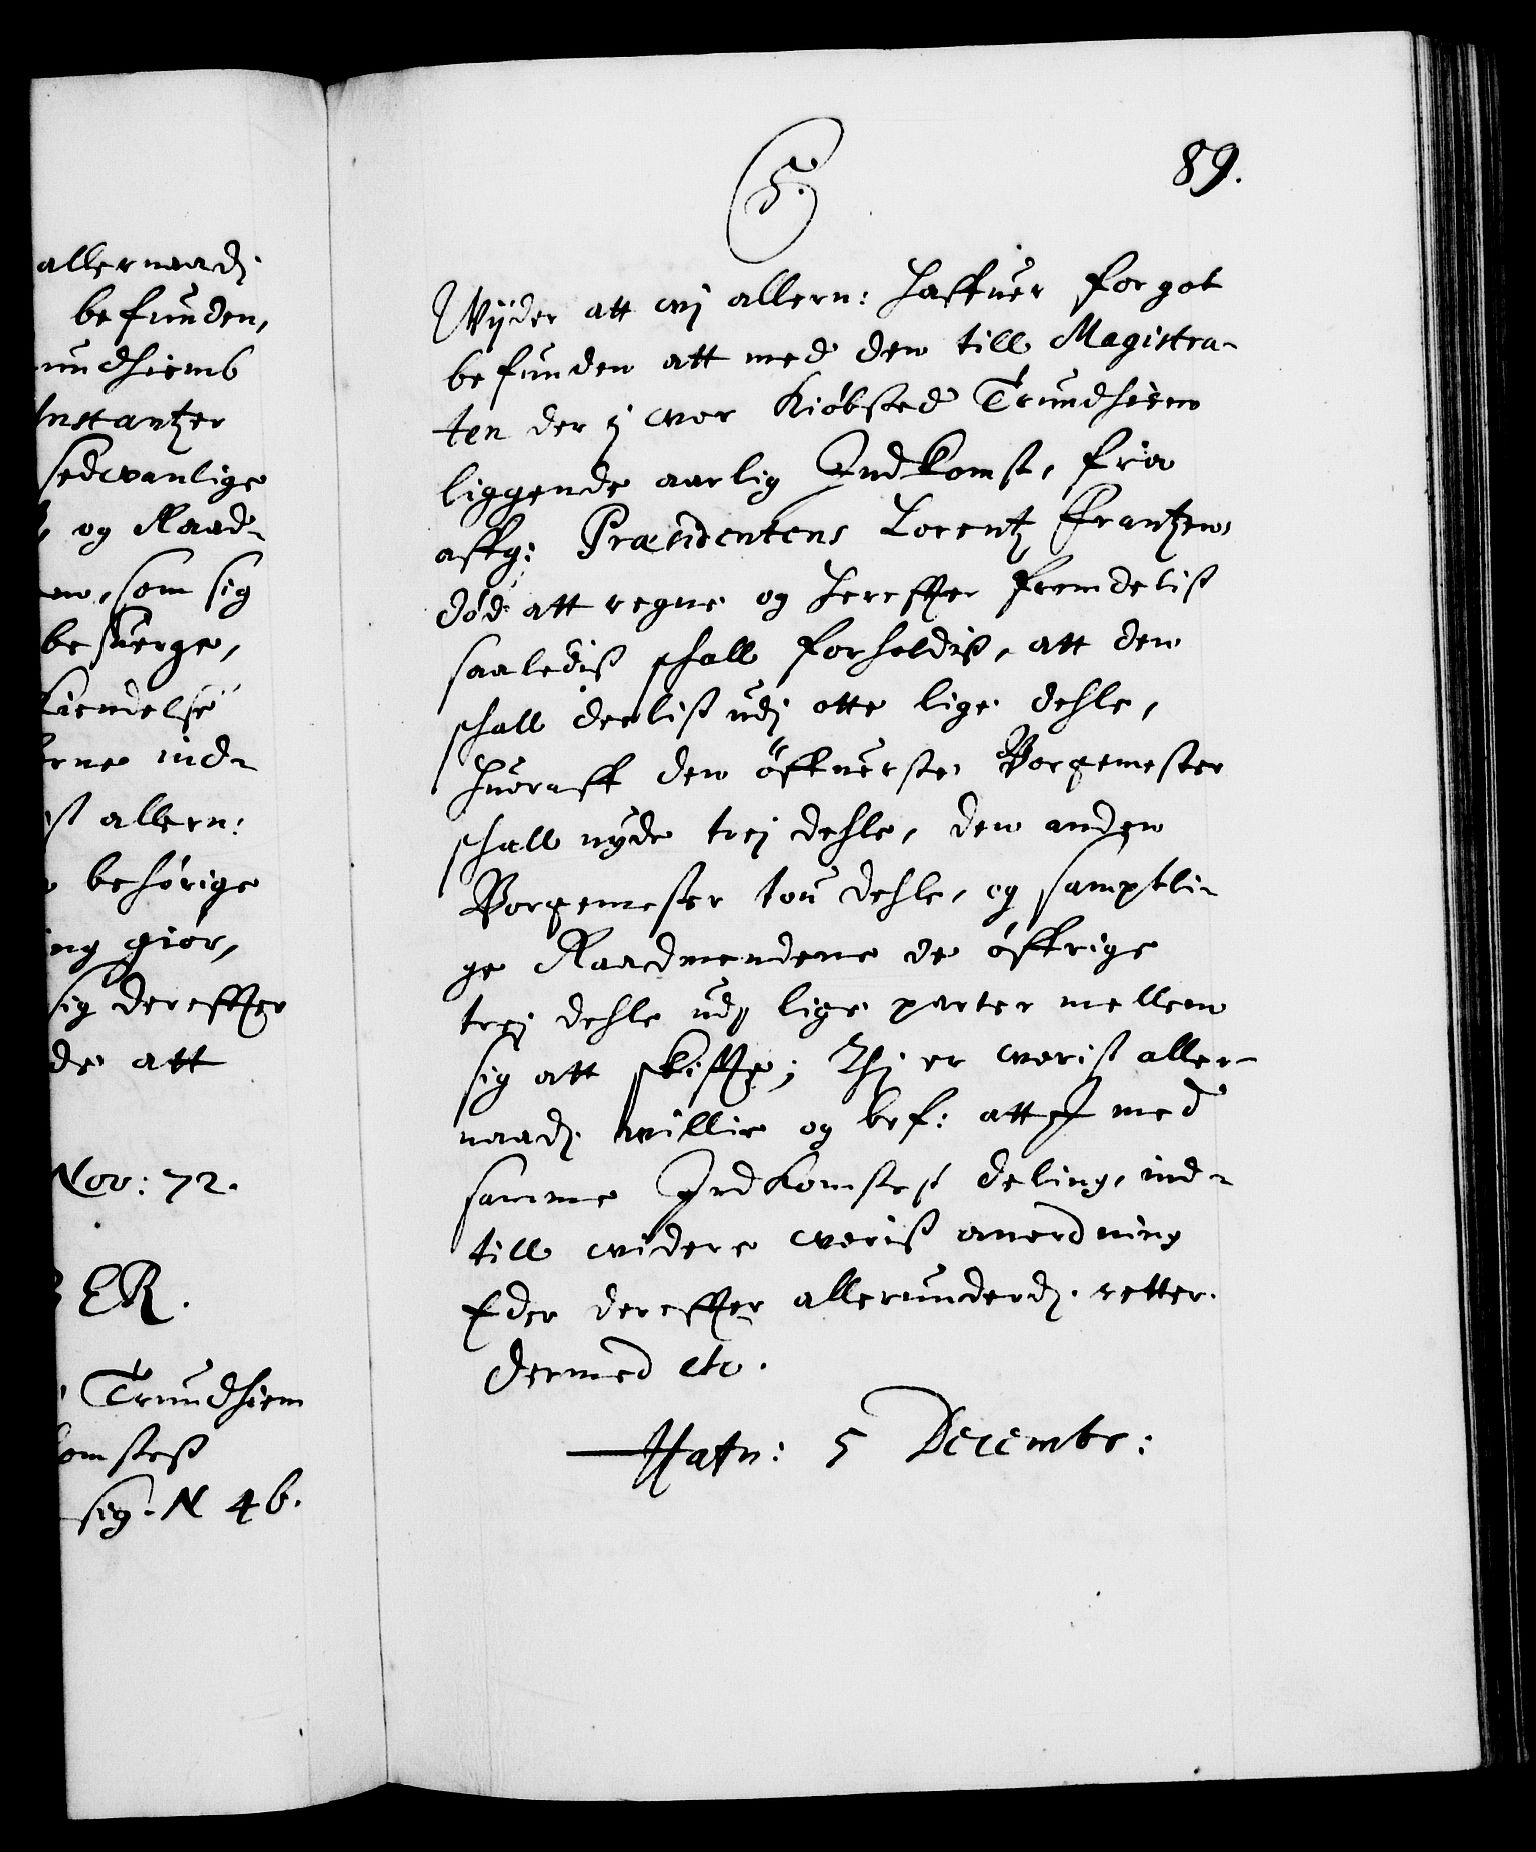 allernaadj.
befunden,
undhiemb
Instantzer
sedvanlige
og Raad-
som sig
besverge,
kiendelse
erne ind-
st allern:
behörige
ing giör,
sig derefter
de att
Nov: 72.
ER.
Trundhiem
komstess
sig. N 46.
89.
5.
Wijder att wj allern: haffuer for got
befunden att med den till Magistra-
ten der j wor Kiöbsted Trundhiem
liggende aarlig Indkomst, fra
affg: Præsidentens Lorentz Frantzens
död att regne og hereffter fremdelist
saalediss schall forholdiss, att den
schall deelist udj otte lige dehle,
huoraff den öffuerste Borgemester
schall nyde trej dehle, den anden
Borgemester tou dehle, og samptli-
ge Raadmendene de öffrige
trej dehle udj lige parter mellem
sig att skiffte; Thj er worist aller-
naadj. willie og bef: att I med
samme Indkomstess deling, ind-
till widere woriss anordning
Eder dereffter allerunderdj. retter.
Dermed etc.
Hafn: 5 Decembr: